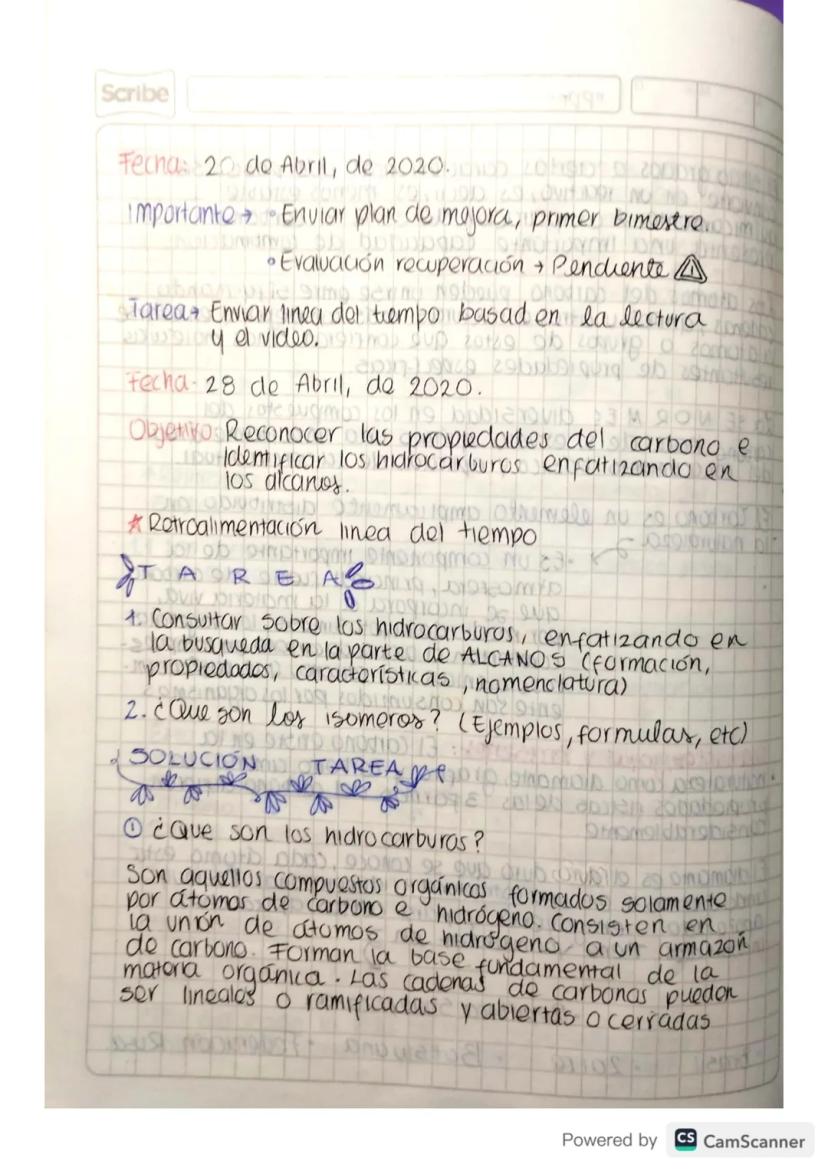 Scribe
Fecha: 20 de Abril, de 2020.
Importante → • Enviar plan de mejora, primer bimestre.
• Evaluación recuperación → Pendiente ⚠
Tarea → Enviar linea del tiempo basad en la lectura
y el video.
Fecha- 28 de Abril, de 2020.
Objetivo: Reconocer las propiedades del carbono e
identificar los hidrocarburos enfatizando en
los alcanos.
* Retroalimentación linea del tiempo
TAREA
1. Consultar sobre los hidrocarburos, enfatizando en
la busqueda en la parte de ALCANOS (formación,
propiedades, características, nomenclatura)
2. ¿Que son los isomeros? (Ejemplos, formulas, etc)
SOLUCIÓN TAREA
① ¿Que son los hidrocarburos?
Son aquellos compuestos orgánicos formados solamente
por átomos de carbono e hidrógeno. Consisten en
la unión de átomos de hidrógeno a un armazón
de carbono. Forman la base fundamental de la
materia orgánica. Las cadenas de carbonos pueden
ser lineales o ramificadas y abiertas o cerradas
Powered by CS CamScanner